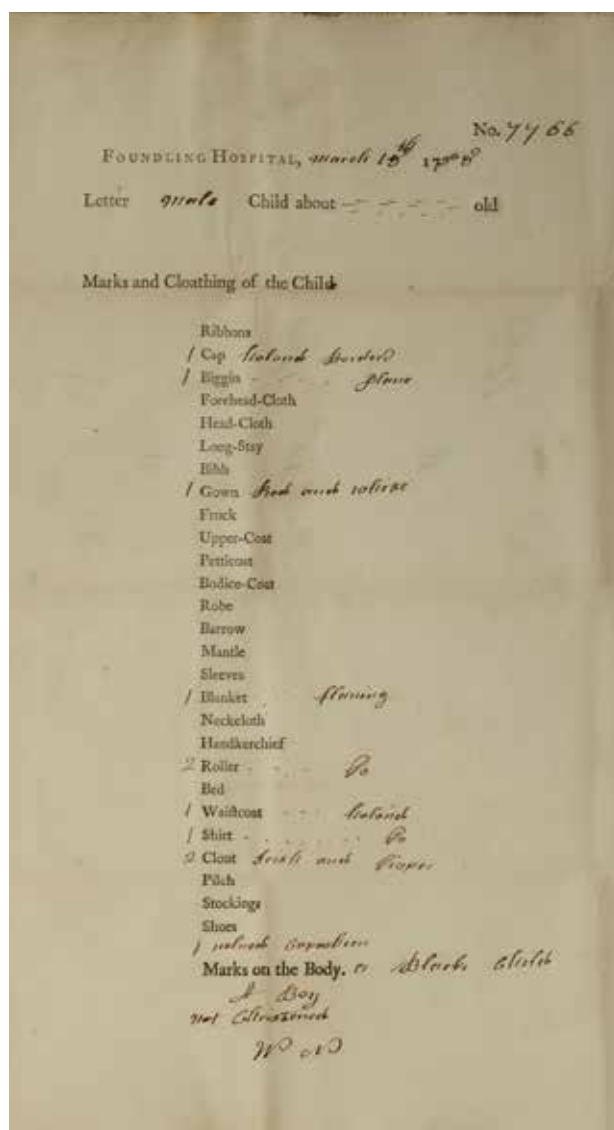 No. 7766
FOUNDLING HOSPITAL, march 18th 1758
Letter male Child about - - - - old
Marks and Cloathing of the Child
Ribbons
1 Cap holand
1 Biggin - - - plane
Forehead-Cloth
Head-Cloth
Long-Stay
Bibb
1 Gown Red and white
Frock
Upper-Coat
Petticoat
Bodice-Coat
Robe
Barrow
Mantle
Sleeves
1 Blanket flaning
Neckcloth
Handkerchief
2 Roller - - - Do
Bed
1 Waistcoat - - - holand
1 Shirt - - - Do
2 Clout Irish and Diaper
Pilch
Stockings
Shoes
1
Marks on the Body. a Black Child
A Boy
not Christened
W N